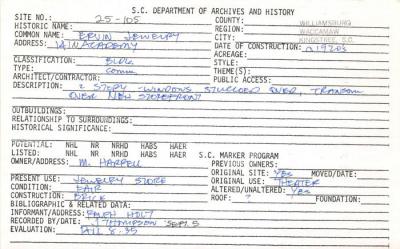 S.C. DEPARTMENT OF ARCHIVES AND HISTORY
SITE NO.: 25-105
COUNTY: WILLIAMSBURG
HISTORIC NAME:
REGION: WACCAMAW
COMMON NAME: ERVIN JEWELRY
CITY: KINGSTREE, S.C.
ADDRESS: ACADEMY
DATE OF CONSTRUCTION: 1920s
ACREAGE:
CLASSIFICATION: BLDG.
STYLE:
TYPE: Comm.
THEME(S):
ARCHITECT/CONTRACTOR:
PUBLIC ACCESS:
DESCRIPTION: 2 STORY - WINDOWS STUCCOED OVER, TRANSOM
OVER NEW STOREFRONT
OUTBUILDINGS:
RELATIONSHIP TO SURROUNDINGS:
HISTORICAL SIGNIFICANCE:
POTENTIAL: NHL NR NRHD HABS HAER
LISTED: NHL NR NRHD HABS HAER S.C. MARKER PROGRAM
OWNER/ADDRESS: M. HARPELL
PREVIOUS OWNERS:
ORIGINAL SITE: Yes MOVED/DATE:
PRESENT USE: JEWELRY STORE
ORIGINAL USE: THEATER
CONDITION: FAIR
ALTERED/UNALTERED: Yes
CONSTRUCTION: BRICK
ROOF: ? FOUNDATION:
BIBLIOGRAPHIC & RELATED DATA:
INFORMANT/ADDRESS: RALPH HOLT
RECORDED BY/DATE: J THOMPSON SEPT. 5
EVALUATION: 8-35